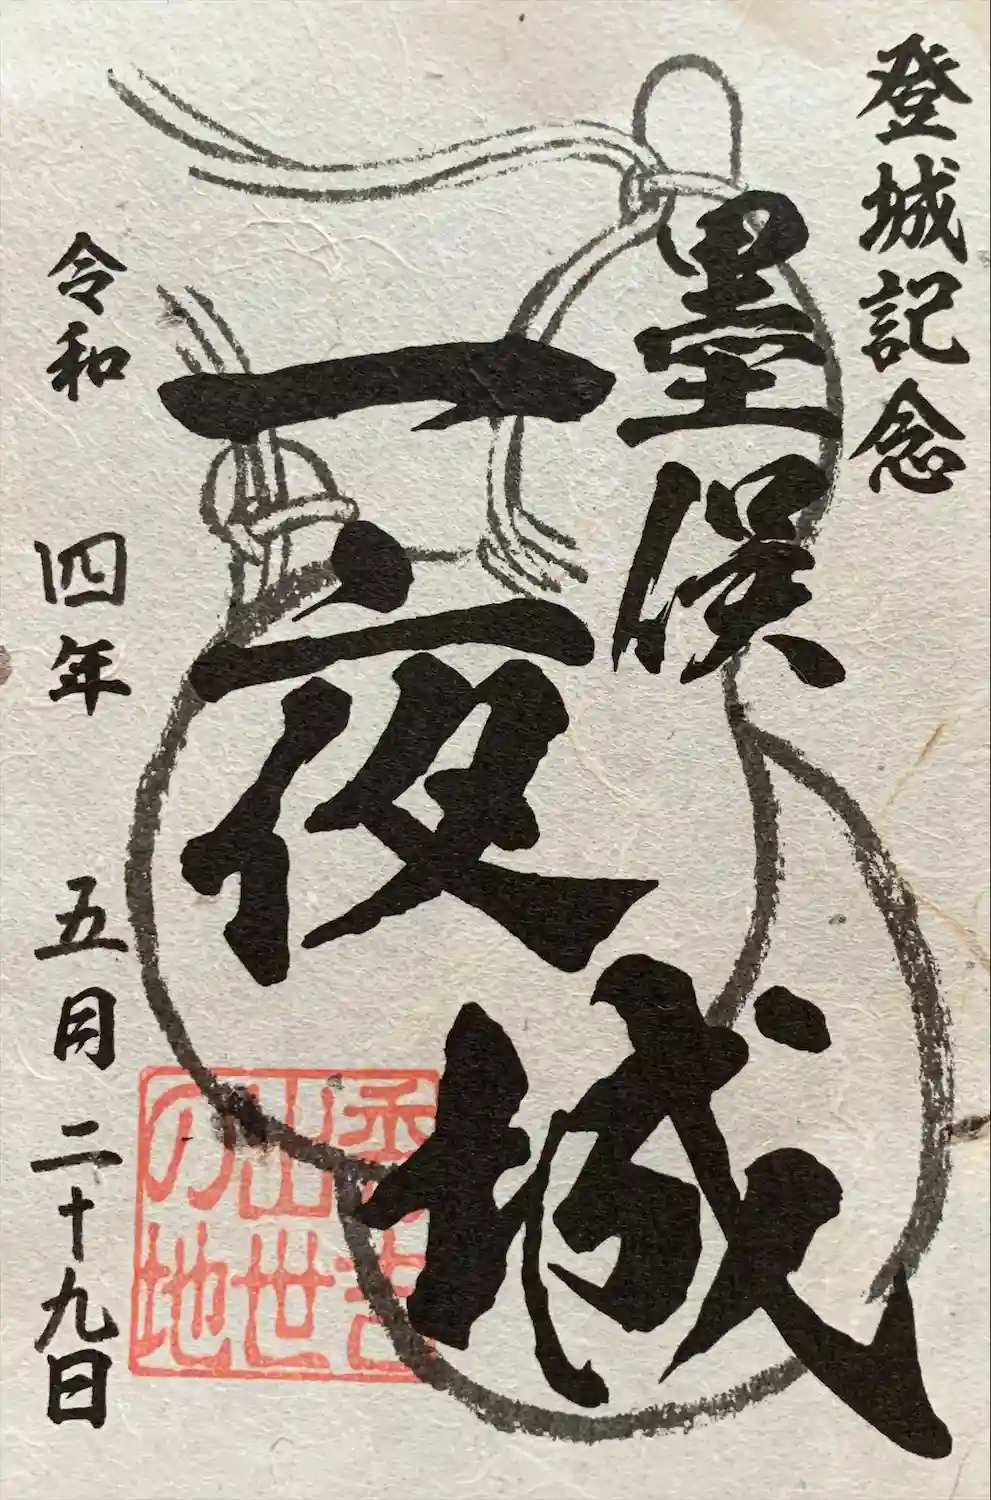 登城記念
墨俣
一夜
城
秀吉
出世
の地
令和四年五月二十九日